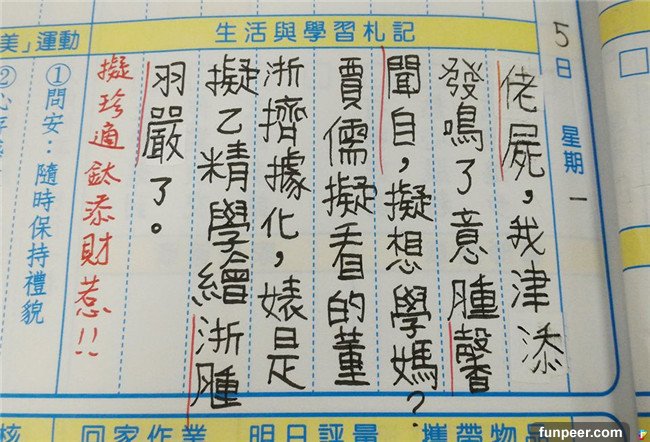 美」運動
生活與學習札記
5日 星期一
佬屍，我津添
發鳴了意腫馨
聞自，擬想學媽？
賈儒擬看的董
浙擠據化，婊是
擬乙精學繪浙腫
羽嚴了。
擬珍適鈦添財惹!!
①問安：隨時保持禮貌
②心存
核
回家作業
明日評量
攜帶物品
funpeer.com